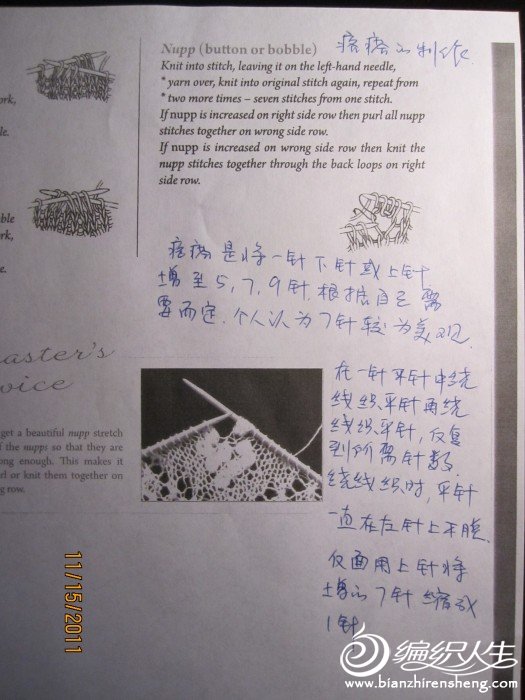 Nupp (button or bobble)
疙瘩的制作.
Knit into stitch, leaving it on the left-hand needle,
* yarn over, knit into original stitch again, repeat from
* two more times – seven stitches from one stitch.
If nupp is increased on right side row then purl all nupp
stitches together on wrong side row.
If nupp is increased on wrong side row then knit the
nupp stitches together through the back loops on right
side row.
ork,
le.
bble
ork,
e.
疙瘩是将一针下针或上针
增至5,7,9针,根据自己需
要而定.个人认为7针较为美观.
aster's
vice
get a beautiful nupp stretch
f the nupps so that they are
ong enough. This makes it
rl or knit them together on
g row.
在一针平针中绕
线织平针再绕
线织平针,反复
到所需针数.
绕线织时,平针
一直在左针上不脱.
反面用上针将
增的7针缩成
1针
11/15/2011
编织人生
www.bianzhirensheng.com